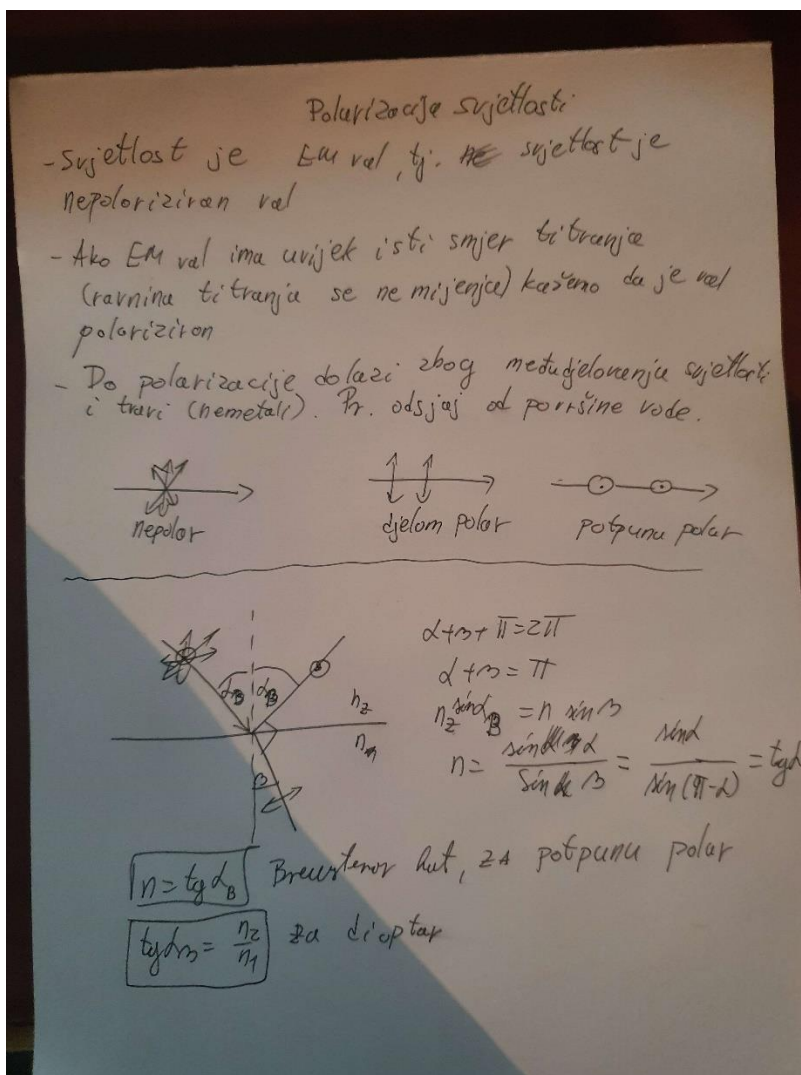 Polarizacija svjetlosti
- Svjetlost je EM val, tj. svjetlost je
nepolariziran val
- Ako EM val ima uvijek isti smjer titranja
(ravnina titranja se ne mijenja) kažemo da je val
polariziran
- Do polarizacije dolazi zbog međudjelovanja svjetlosti
i tvari (nemetali). Pr. odsjaj od površine vode.
nepolar
djelom polar
potpuna polar
α+β+π=2π
α+β=π
n_z sinα_B = n sinβ
n = sinα / sinβ = sinα / sin(π-α) = tgα
α_B α_B
n_z
β
n = tgα_B Brewsterov kut, za potpunu polar
tgα_B = n_2/n_1 za dioptar